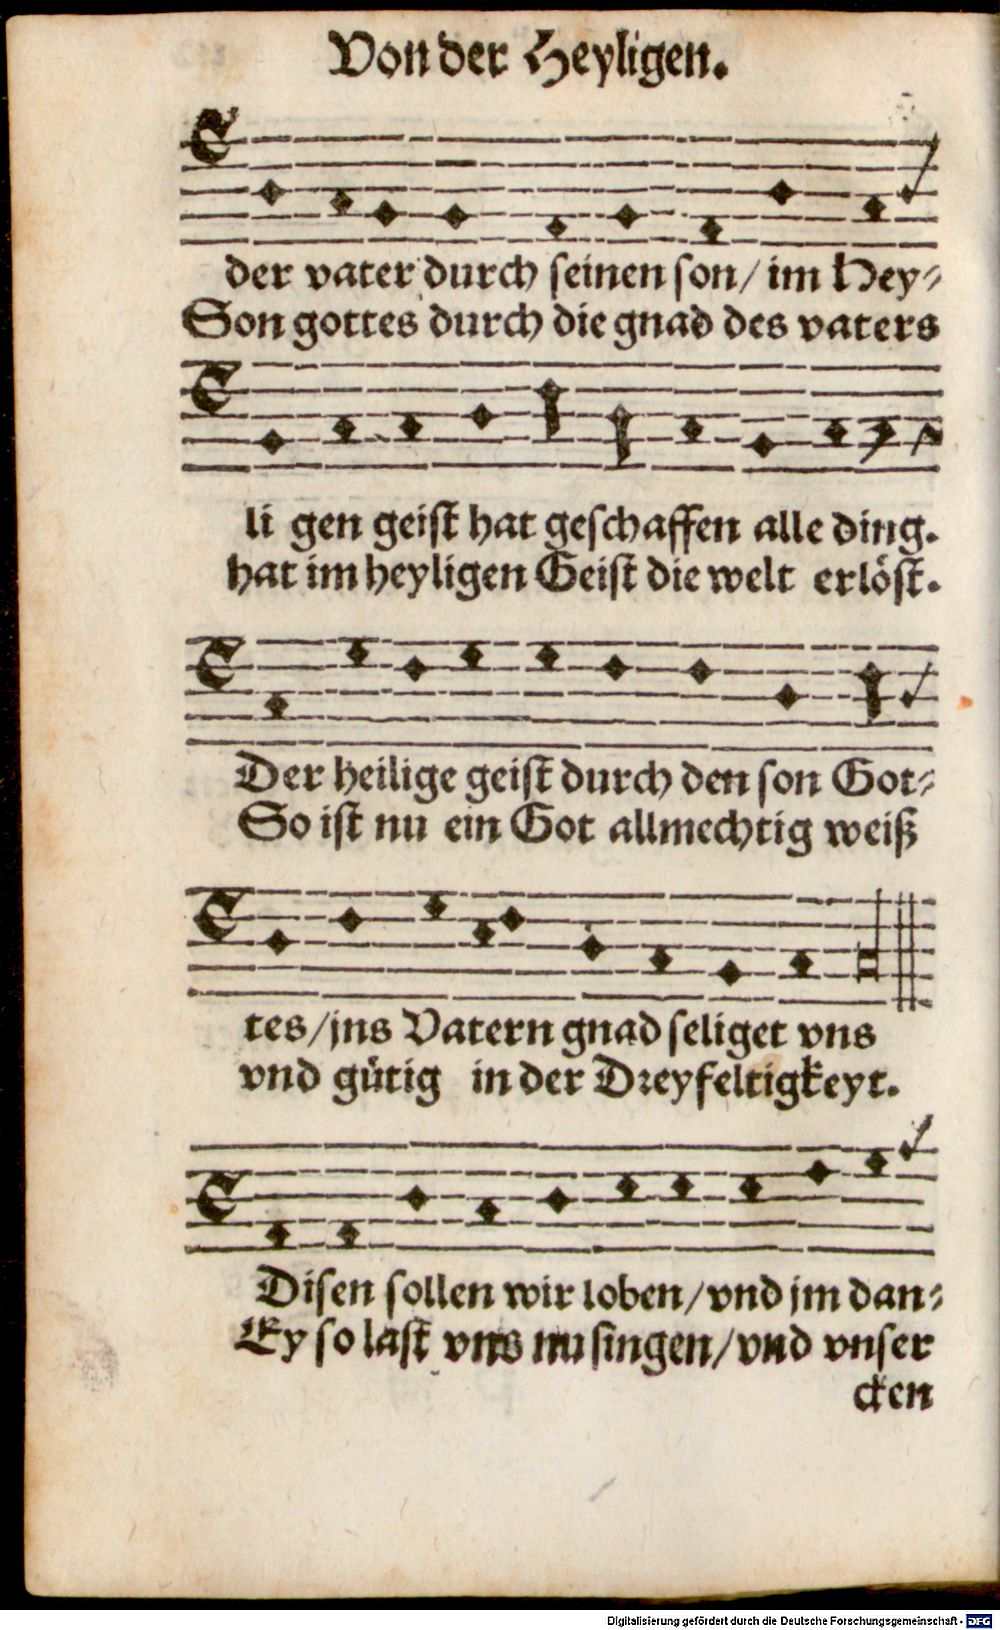 Von der Heyligen.
der vater durch seinen son/ im Hey⸗
Son gottes durch die gnad des vaters
li gen geist hat geschaffen alle ding.
hat im heyligen Geist die welt erlöst.
Der heilige geist durch den son Got⸗
So ist nu ein Got allmechtig weiß
tes/jns Vatern gnad seliget vns
vnd gütig in der Dreyfeltigkeyt.
Disen sollen wir loben/vnd jm dan⸗
Ey so last vns nu singen/vnd vnser
cken
Digitalisierung gefördert durch die Deutsche Forschungsgemeinschaft - DFG